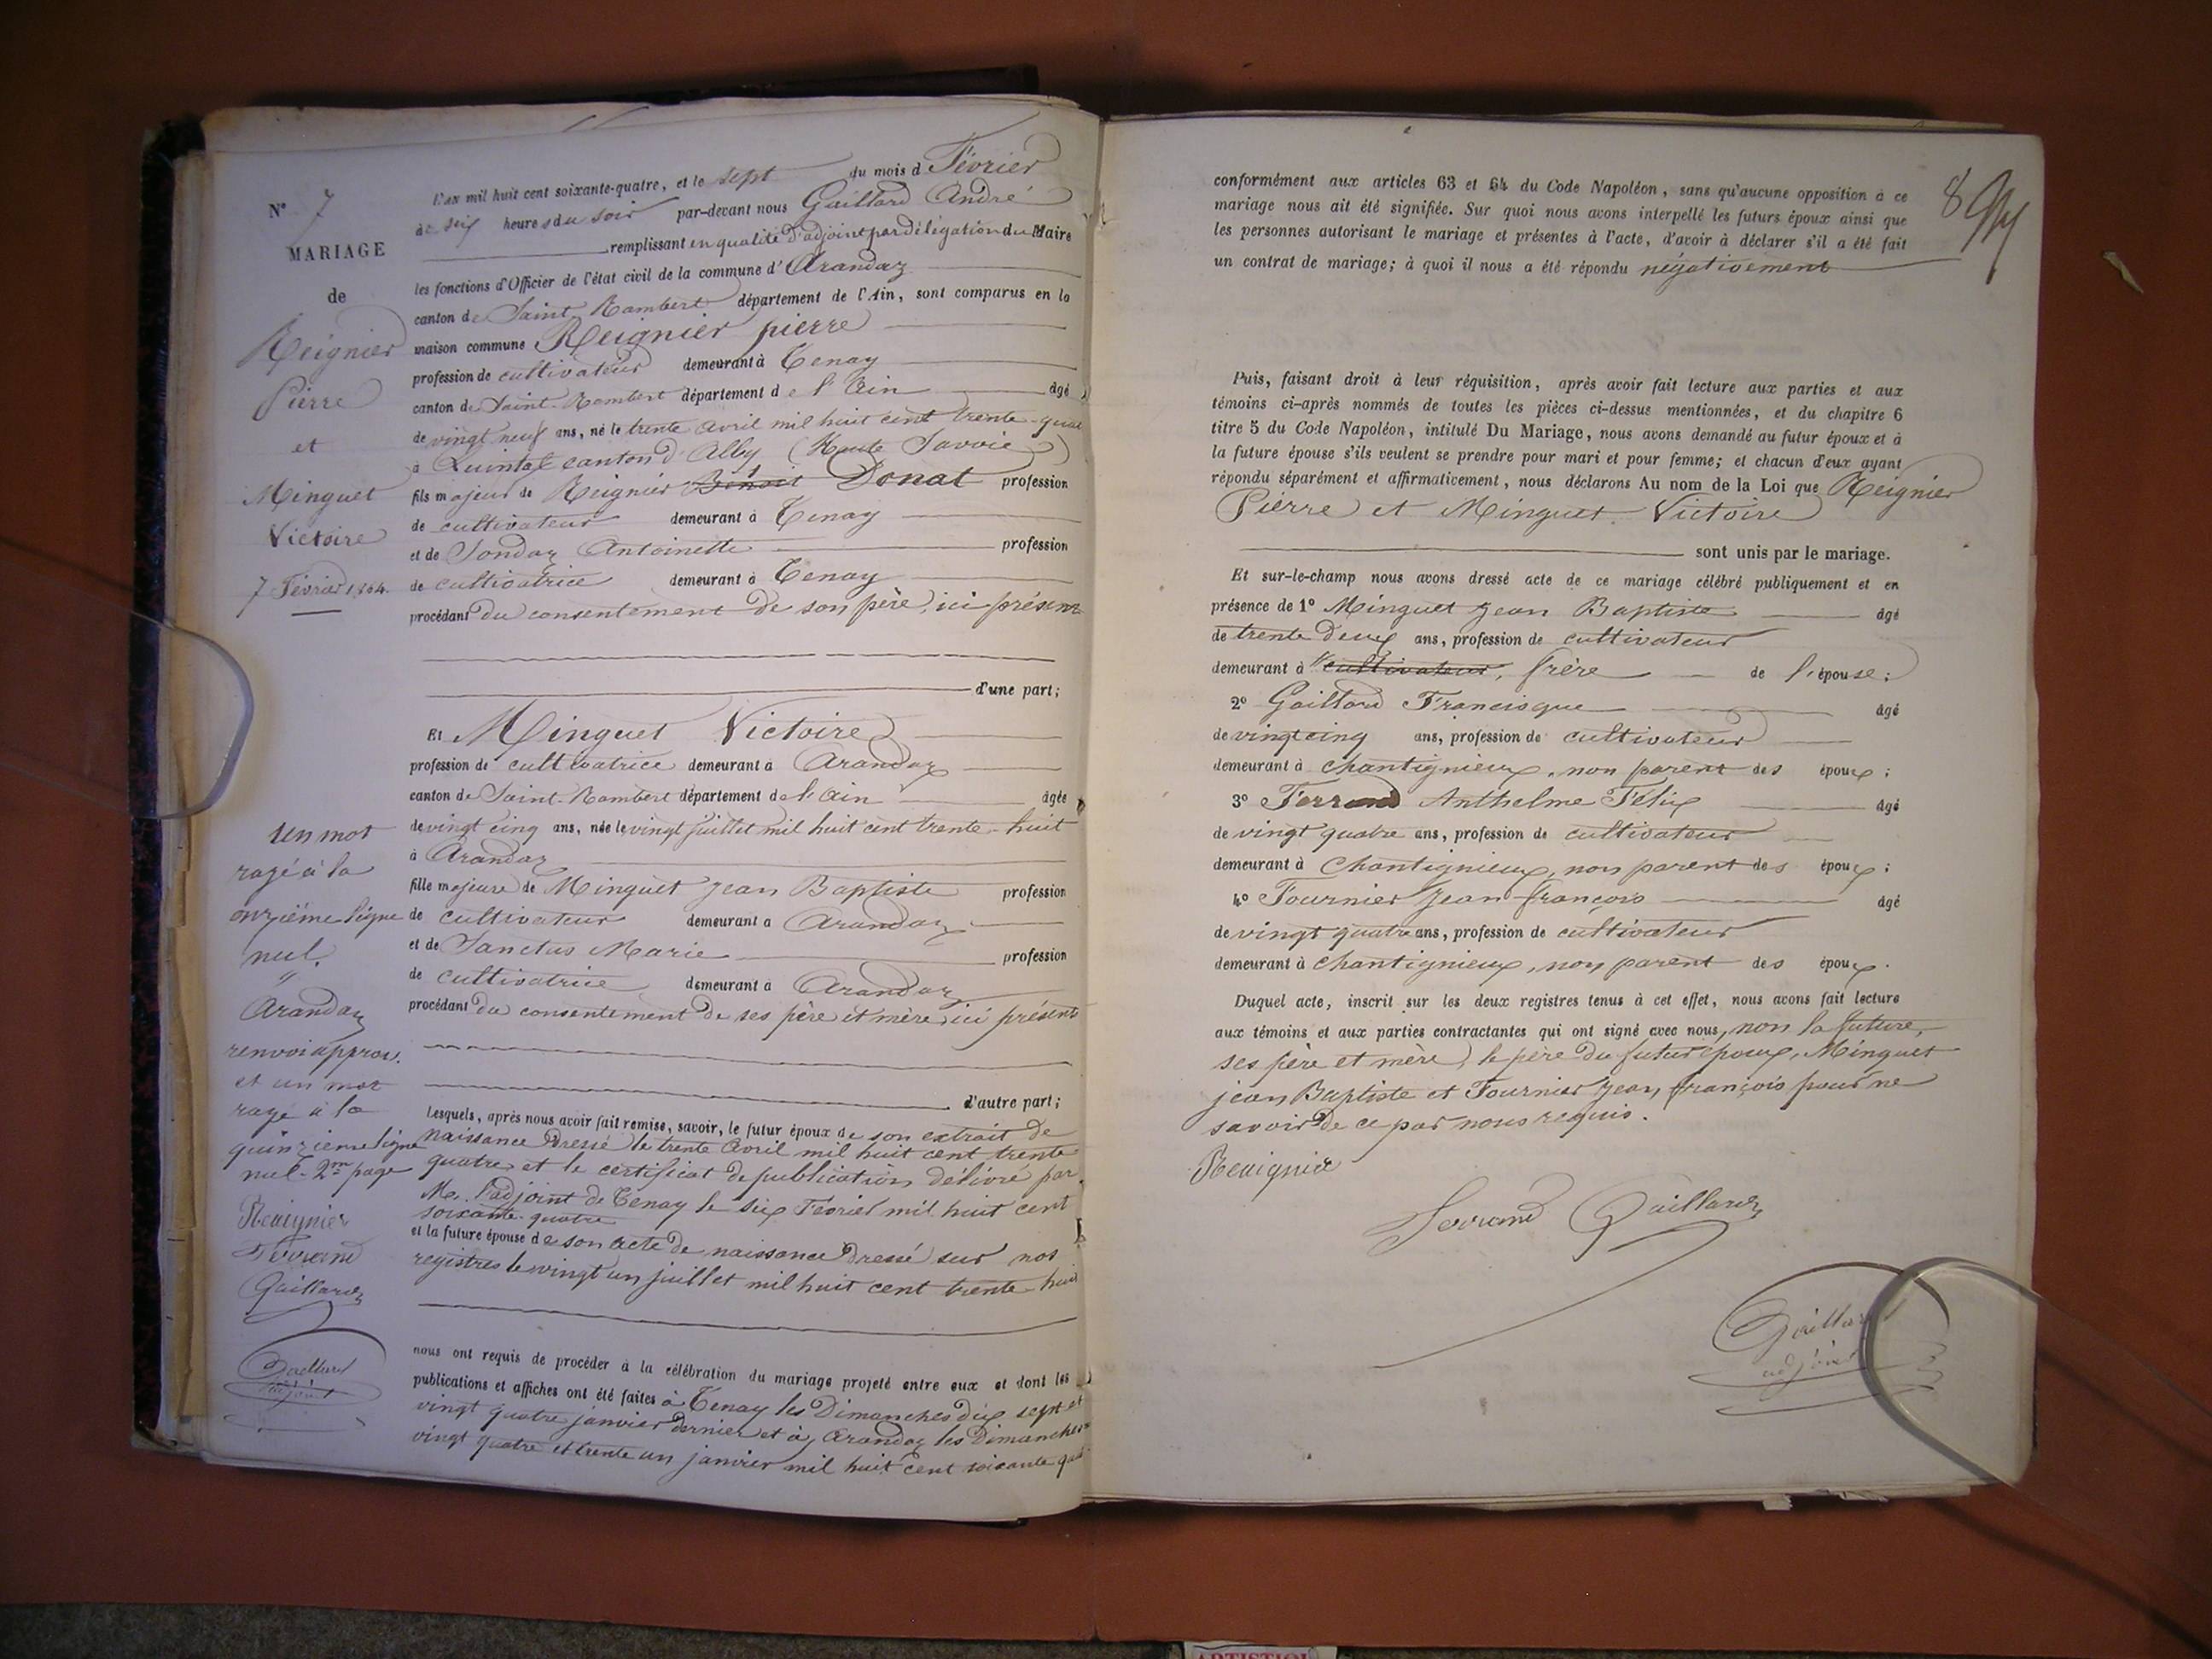 N° 7
MARIAGE
de
Reignier
Pierre
et
Minguet
Victoire
7 Février 1864.
Un mot
rayé à la
onzième ligne
nul.
"
Arandaz
renvoi approu.
et un mot
rayé à la
quinzième ligne
nul. 2me page
Reaignier
Ferrand
Gaillard
Gaillard
adjoint
L'an mil huit cent soixante-quatre, et le sept du mois d Février
à six heures du soir par-devant nous Gaillard André
remplissant en qualité d'adjoint par délégation du Maire
les fonctions d'Officier de l'état civil de la commune d' Arandaz
canton de Saint-Rambert département de l'Ain, sont comparus en la
maison commune Reignier pierre
profession de cultivateur demeurant à Tenay
canton de Saint-Rambert département de l'Ain âgé
de vingt neuf ans, né le trente avril mil huit cent trente-quat
à Quintal canton d'Alby (Haute Savoie)
fils majeur de Reignier Benoit Donat profession
de cultivateur demeurant à Tenay
et de Sondaz Antoinette profession
de cultivatrice demeurant à Tenay
procédant du consentement de son père, ici présent
d'une part;
Et Minguet Victoire
profession de cultivatrice demeurant à Arandaz
canton de Saint-Rambert département de l'Ain âgée
de vingt cinq ans, née le vingt juillet mil huit cent trente-huit
à Arandaz
fille majeure de Minguet Jean Baptiste profession
de cultivateur demeurant à Arandaz
et de Sanctus Marie profession
de cultivatrice demeurant à Arandaz
procédant du consentement de ses père et mère, ici présents
d'autre part;
Lesquels, après nous avoir fait remise, savoir, le futur époux de son extrait de
naissance dressé le trente Avril mil huit cent trente
quatre, et le certificat de publication délivré par
Mr l'adjoint de Tenay le six Février mil huit cent
soixante-quatre
et la future épouse de son acte de naissance dressé sur nos
registres le vingt un juillet mil huit cent trente-huit
nous ont requis de procéder à la célébration du mariage projeté entre eux et dont les
publications et affiches ont été faites à Tenay les Dimanches dix sept et
vingt quatre janvier dernier et à Arandaz les Dimanches
vingt quatre et trente un janvier mil huit cent soixante qua
8
conformément aux articles 63 et 64 du Code Napoléon, sans qu'aucune opposition à ce
mariage nous ait été signifiée. Sur quoi nous avons interpellé les futurs époux ainsi que
les personnes autorisant le mariage et présentes à l'acte, d'avoir à déclarer s'il a été fait
un contrat de mariage; à quoi il nous a été répondu négativement
Puis, faisant droit à leur réquisition, après avoir fait lecture aux parties et aux
témoins ci-après nommés de toutes les pièces ci-dessus mentionnées, et du chapitre 6
titre 5 du Code Napoléon, intitulé Du Mariage, nous avons demandé au futur époux et à
la future épouse s'ils veulent se prendre pour mari et pour femme; et chacun d'eux ayant
répondu séparément et affirmativement, nous déclarons Au nom de la Loi que Reignier
Pierre et Minguet Victoire
sont unis par le mariage.
Et sur-le-champ nous avons dressé acte de ce mariage célébré publiquement et en
présence de 1° Minguet Jean Baptiste âgé
de trente deux ans, profession de cultivateur
demeurant à " cultivateur, frère de l'épouse;
2° Gaillard Francisque âgé
de vingt cinq ans, profession de cultivateur
demeurant à Chantignieux, non parent des époux;
3° Ferrand Anthelme Félix âgé
de vingt quatre ans, profession de cultivateur
demeurant à Chantignieux, non parent des époux;
4° Fournier Jean françois âgé
de vingt quatre ans, profession de cultivateur
demeurant à Chantignieux, non parent des époux.
Duquel acte, inscrit sur les deux registres tenus à cet effet, nous avons fait lecture
aux témoins et aux parties contractantes qui ont signé avec nous, non la future,
ses père et mère, le père du futur époux, Minguet
jean Baptiste et Fournier Jean françois pour ne
savoir de ce par nous requis.
Reaignier
Ferrand Gaillard
Gaillard
adjoint